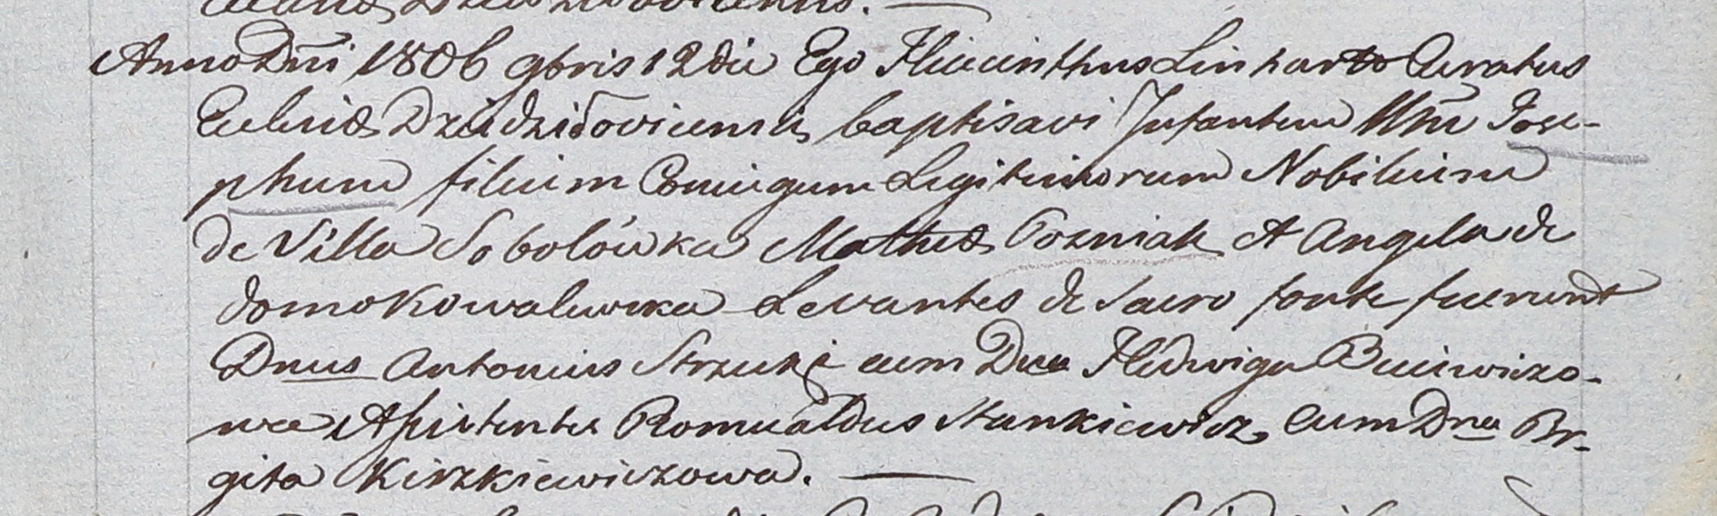 Anno Dni 1806 9bris 12 die Ego Hiacinthus Linharto Curatus
Eclesiæ Dziedziłovicensis baptisavi Infantem Nne Jose-
phum filium Coniugum Legitimorum Nobilium
de Villa Sobolówka Mathæ Cozniak et Angela de
domo Kowalewska Levantes de Sacro fonte fuerunt
Dnus Antonius Strzuki cum Dna Hedwiga
wa Assistentes Romualdus Stankiewicz, cum Dna Br-
gita Kirzkiewiczowa.